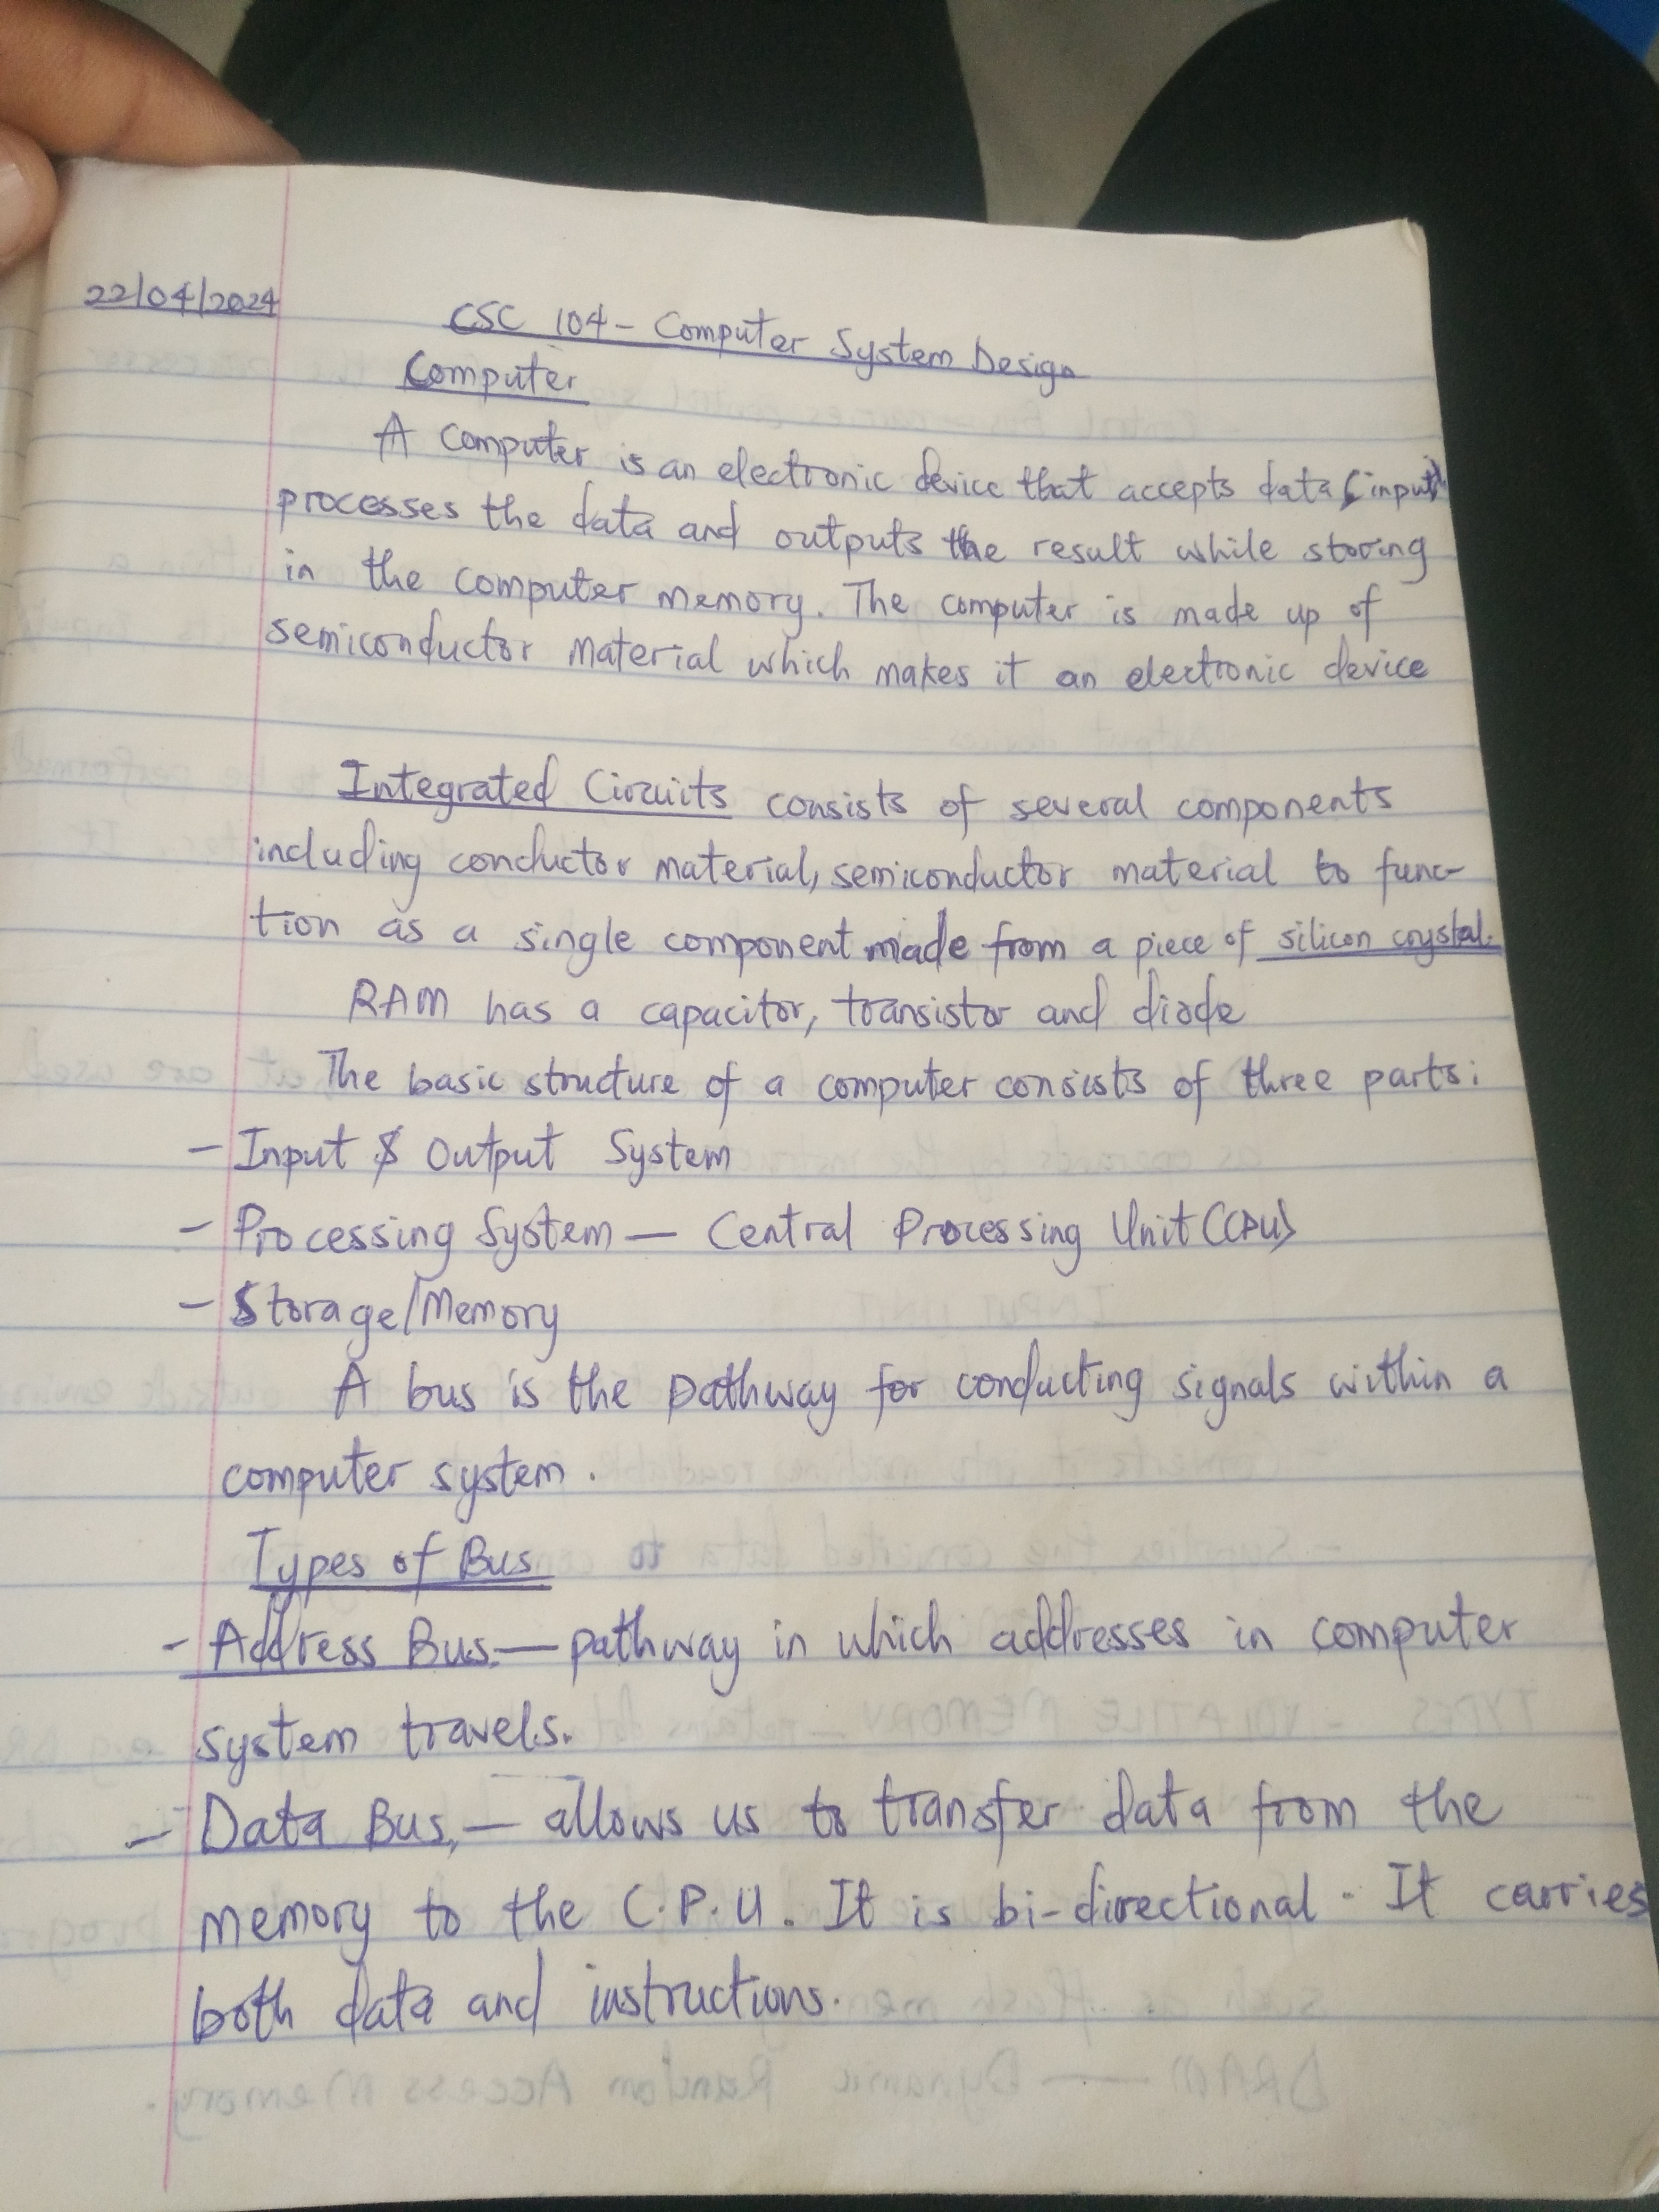 22/04/2024
CSC 104 - Computer System Design
Computer
A computer is an electronic device that accepts data (input)
processes the data and outputs the result while storing
in the computer memory. The computer is made up of
semiconductor material which makes it an electronic device
Integrated Circuits consists of several components
including conductor material, semiconductor material to func-
tion as a single component made from a piece of silicon crystal.
RAM has a capacitor, transistor and diode
The basic structure of a computer consists of three parts:
- Input & Output System
- Processing System — Central Processing Unit (CPU)
- Storage/Memory
A bus is the pathway for conducting signals within a
computer system.
Types of Bus
- Address Bus — pathway in which addresses in computer
system travels.
- Data Bus, — allows us to transfer data from the
memory to the C.P.U. It is bi-directional. It carries
both data and instructions.